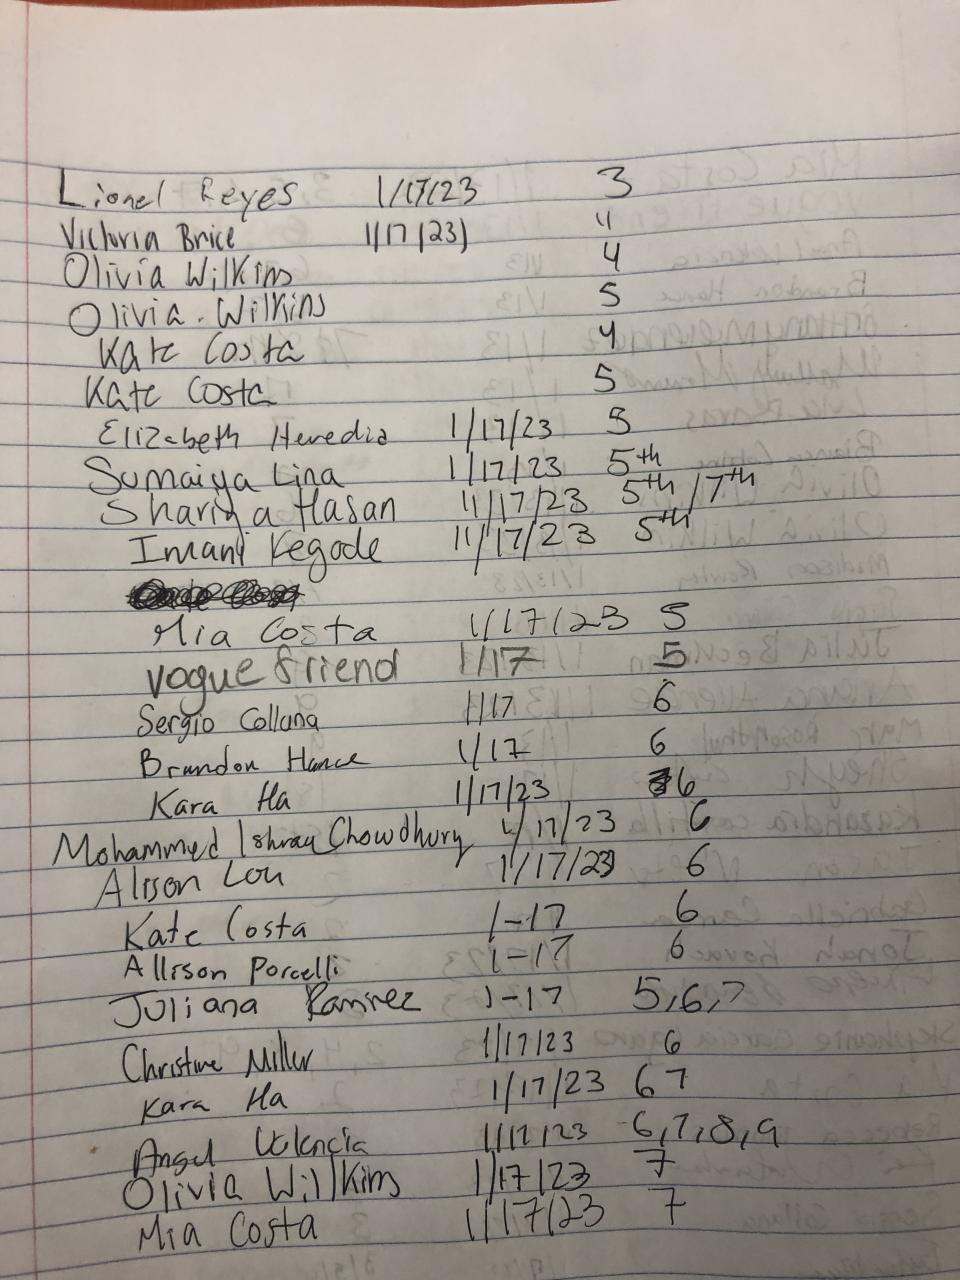 Lionel Reyes 1/17/23 3
Victoria Brice 1/17/23) 4
Olivia Wilkins 4
Olivia. Wilkins 5
Kate Costa 4
Kate Costa 5
Elizabeth Heredia 1/17/23 5
Sumaiya Lina 1/17/23 5th
Shariqa Hasan 11/17/23 5th/7th
Imani Kegode 11/17/23 5th
Mia Costa 1/17/23 5
vogue friend 1/17 5
Sergio Collana 1/17 6
Brandon Hance 1/17 6
Kara Ha 1/17/23 6
Mohammed Ishraq Chowdhury 1/17/23 6
Alison Lou 1/17/23 6
Kate Costa 1-17 6
Allison Porcelli 1-17 6
Juliana Ramirez 1-17 5,6,7
Christine Miller 1/17/23 6
Kara Ha 1/17/23 6 7
Angel Valencia 1/17/23 6,7,8,9
Olivia Willkins 1/17/23 7
Mia Costa 1/17/23 7